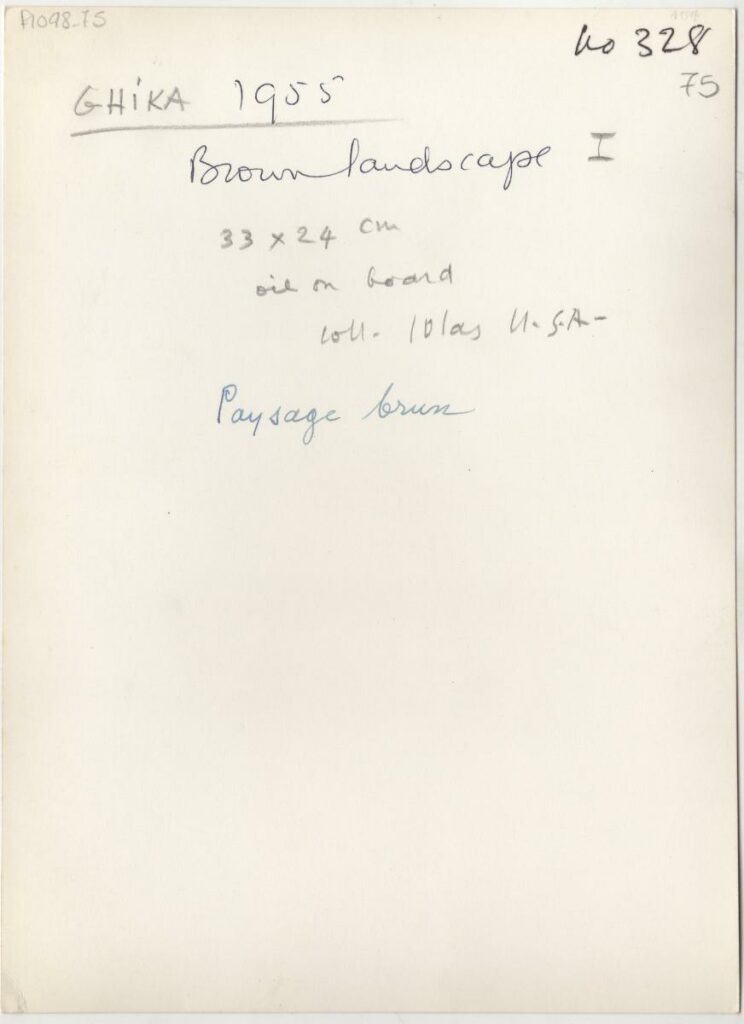 No 328
75
GHIKA 1955
Brown landscape I
33 x 24 cm
oil on board
coll. Iolas U.S.A-
Paysage brun